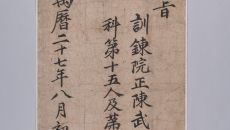 旨
訓鍊院正陳武
科第十五人及第
萬曆二十七年八月初